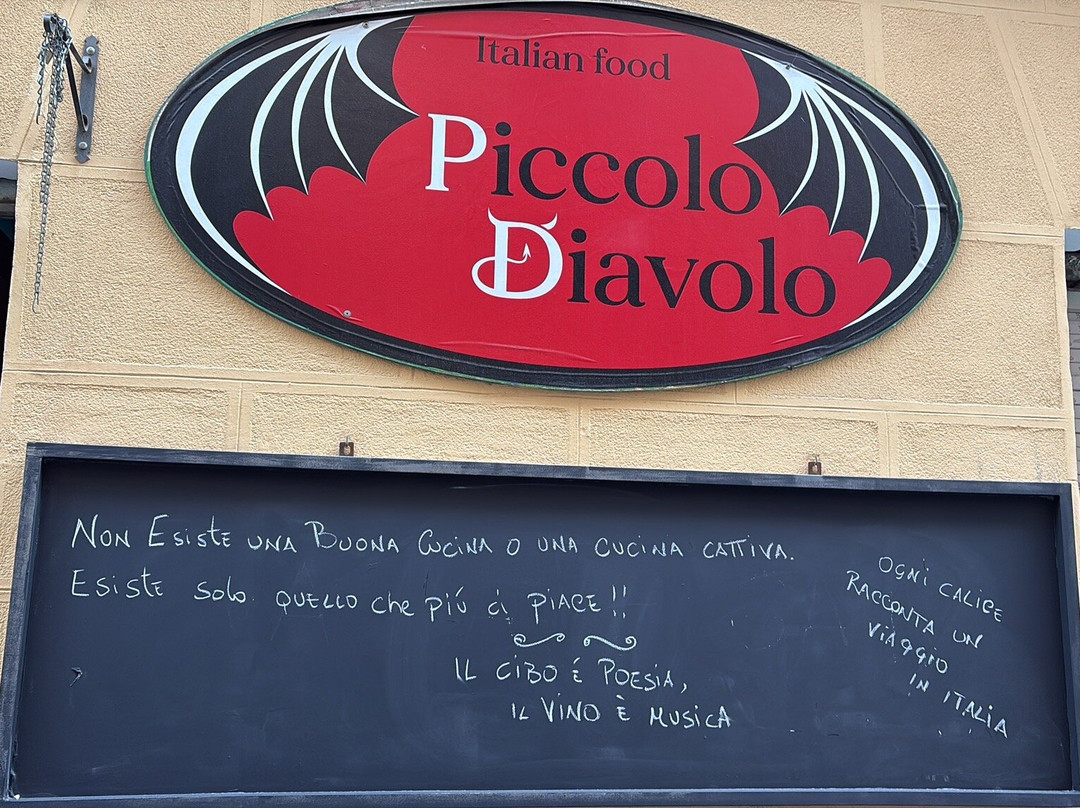 Italian food
Piccolo
Diavolo
NON ESISTE UNA BUONA CUCINA O UNA CUCINA CATTIVA.
ESISTE SOLO QUELLO che più ci PIACE!!
IL CIBO É POESIA,
IL VINO È MUSICA
OGNI CALICE
RACCONTA UN
VIAGGIO
IN ITALIA